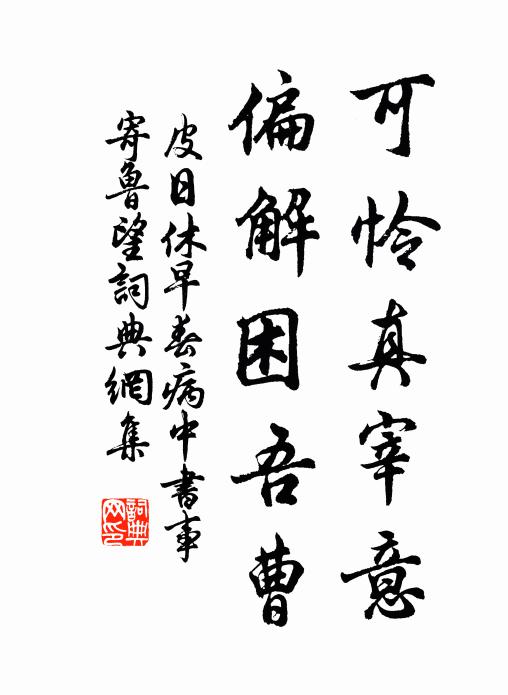 可怜真宰意
偏解困吾曹
皮日休早春病中書事
寄魯望詞典網集
詞典
网印